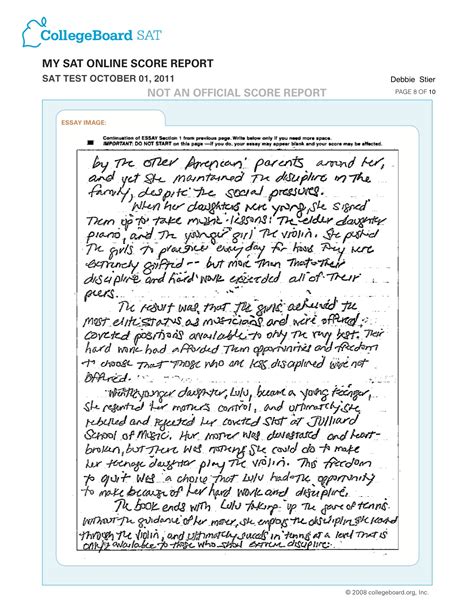 CollegeBoard SAT
MY SAT ONLINE SCORE REPORT
SAT TEST OCTOBER 01, 2011
Debbie Stier
NOT AN OFFICIAL SCORE REPORT
PAGE 8 OF 10
ESSAY IMAGE:
Continuation of ESSAY Section 1 from previous page. Write below only if you need more space.
IMPORTANT: DO NOT START on this page—if you do, your essay may appear blank and your score may be affected.
by the other American parents around her,
and yet she maintained the discipline in the
family, despite the social pressures.
When her daughters were young, she signed
them up to take music lessons: the elder daughter
piano, and the younger girl the violin. She pushed
the girls to practice everyday for hours. They were
extremely gifted -- but more than that - their
discipline and hard work exceeded all of their
peers.
The result was that the girls achieved the
most elite status as musicians and were offered
coveted positions available to only the very best. Their
hard work had afforded them opportunities and freedom
to choose that those who are less disciplined were not
offered.
younger daughter, Lulu, became a young teenager,
she resented her mothers control, and ultimately, she
rebelled and rejected her coveted slot at Julliard
School of Music. Her mother was devastated and heart-
broken, but there was nothing she could do to make
her teenage daughter play the violin. This freedom
to quit was a choice that Lulu had the opportunity
to make because of her hard work and discipline.
The book ends with Lulu taking up the game of tennis.
Without the guidance of her mother, she employs the discipline she learned
through the violin, and ultimately succeeds in tennis at a level that is
only available to those who show extreme discipline.
© 2008 collegeboard.org, Inc.